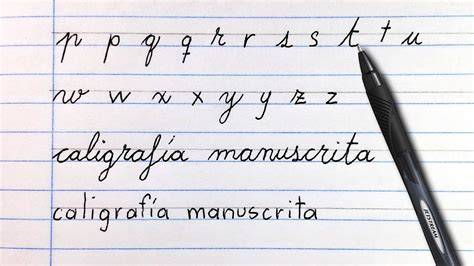 p p q q r r s s t t u
w w x x y y z z
caligrafía manuscrita
caligrafía manuscrita